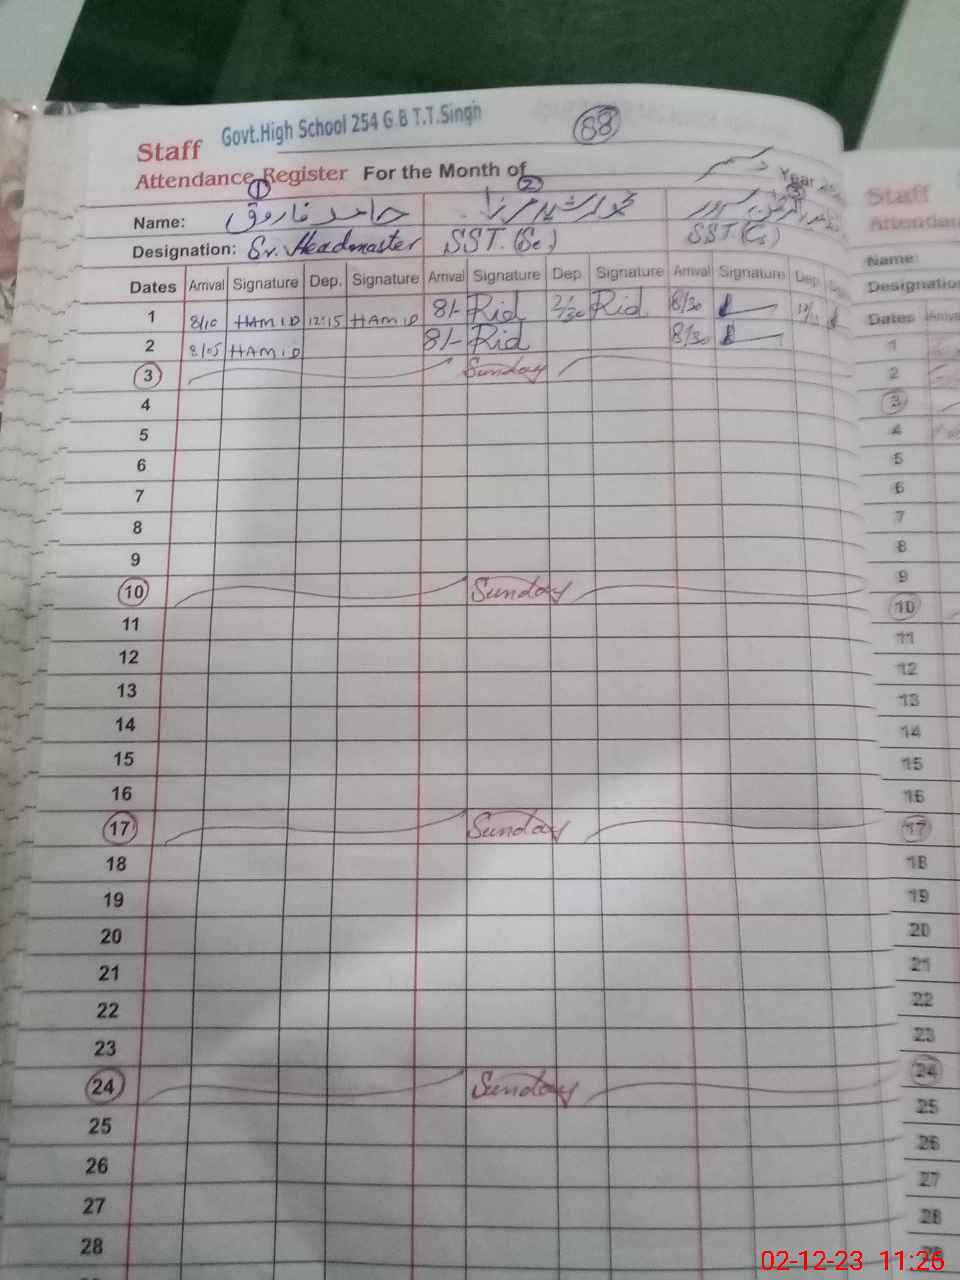 Govt.High School 254 G.B T.T.Singh
68
Staff
Attendance Register For the Month of دسمبر Year
1 2 3
Name: حامد فاروق
Designation: Sr. Headmaster SST.(Sc) SST.(Cs)
Dates Arrival Signature Dep. Signature Arrival Signature Dep Signature Arrival Signature Dep
1 8/10 HAMID 12:15 HAMID 8/- Rid 2/30 Rid 8/30
2 8/05 HAMID 8/- Rid 8/30
3 Sunday
4
5
6
7
8
9
10 Sunday
11
12
13
14
15
16
17 Sunday
18
19
20
21
22
23
24 Sunday
25
26
27
28
Staff
Attendan
Name:
Designatio
Dates
1
2
3
4
5
6
7
8
9
10
11
12
13
14
15
16
17
18
19
20
21
22
23
24
25
26
27
28
02-12-23 11:26